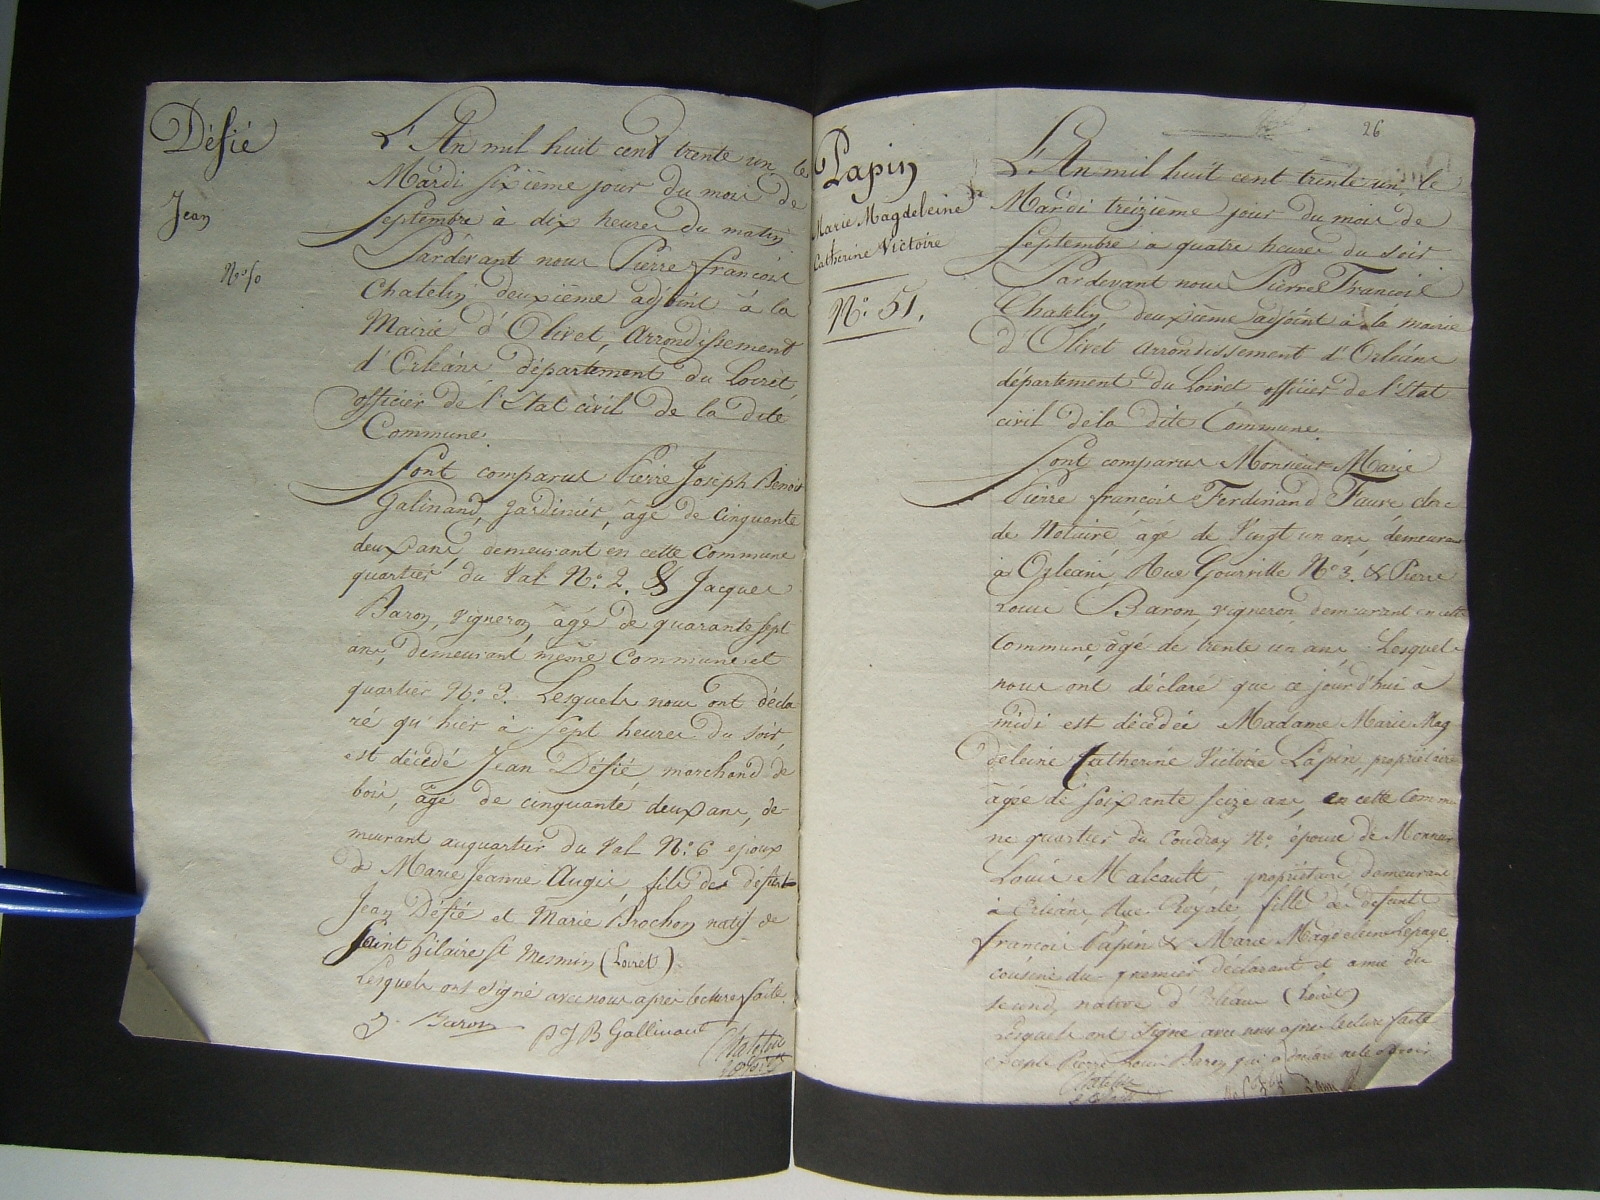 Défié
Jean
N° 50
L'An mil huit cent trente un, le
Mardi sixième jour du mois de
Septembre à dix heures du matin
Pardevant nous Pierre françois
Chatelin deuxième adjoint à la
Mairie d'Olivet, arrondissement
d'Orléans département du Loiret,
officier de l'Etat civil de la dite
Commune.
Sont comparus Pierre Joseph Benoit
Galinand, Jardinier, âgé de cinquante
deux ans, demeurant en cette Commune
quartier du Val N° 2. & Jacques
Baron, vigneron, âgé de quarante sept
ans, demeurant même Commune et
quartier N° 3. Lesquels nous ont décla
ré qu'hier à sept heures du soir,
est décédé Jean Défié, marchand de
bois, âgé de cinquante deux ans, de-
meurant au quartier du Val N° 6 époux
de Marie Jeanne Augié, fils des defunts
Jean Défié et Marie Brochon natif de
Saint hilaire St Mesmin (Loiret).
Lesquels ont signé avec nous après lecture faite.
J. Baron
P J B Gallinand
Chatelin
26
Papin
Marie Magdeleine
Catherine Victoire
N° 51.
L'An mil huit cent trente un, le
Mardi treizième jour du mois de
Septembre à quatre heures du soir
Pardevant nous Pierre François
Chatelin, deuxième adjoint à la mairie
d'Olivet arrondissement d'Orléans
département du Loiret officier de l'Etat
civil de la dite Commune.
Sont comparus Monsieur Marie
Pierre françois Ferdinand Faure clerc
de Notaire âgé de Vingt un ans, demeurant
à Orléans, Rue Gourville N° 3. & Pierre
Louis Baron, vigneron, demeurant en cette
Commune, âgé de trente un ans Lesquels
nous ont déclaré que ce jourd'hui à
midi est décédée Madame Marie Mag
deleine Catherine Victoire Papin, propriétaire
âgée de soixante seize ans, en cette Commu
ne quartier du Coudray N° épouse de Monsieur
Louis Malcault, propriétaire demeurant
à Orléans, Rue Royale, fille de defunts
françois Papin & Marie Magdeleine Lepage
cousine du premier déclarant et amie du
second, native d'Orléans (Loiret)
Lesquels ont signé avec nous après lecture faite
excepté Pierre Louis Baron qui a déclaré ne le savoir
Chatelin